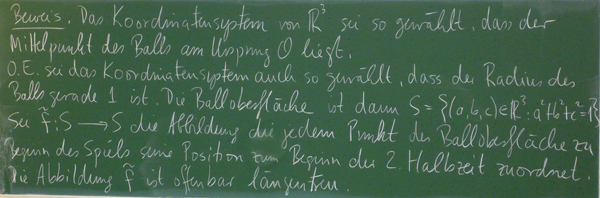 Beweis. Das Koordinatensystem von ℝ³ sei so gewählt, dass der
Mittelpunkt des Balls am Ursprung O liegt.
O.E. sei das Koordinatensystem auch so gewählt, dass der Radius des
Balls gerade 1 ist. Die Balloberfläche ist dann S = {(a,b,c) ∈ ℝ³ : a²+b²+c² = 1}
Sei f̃: S → S die Abbildung die jedem Punkt der Balloberfläche zu
Beginn des Spiels seine Position zum Beginn der 2. Halbzeit zuordnet.
Die Abbildung f̃ ist offenbar längentreu.